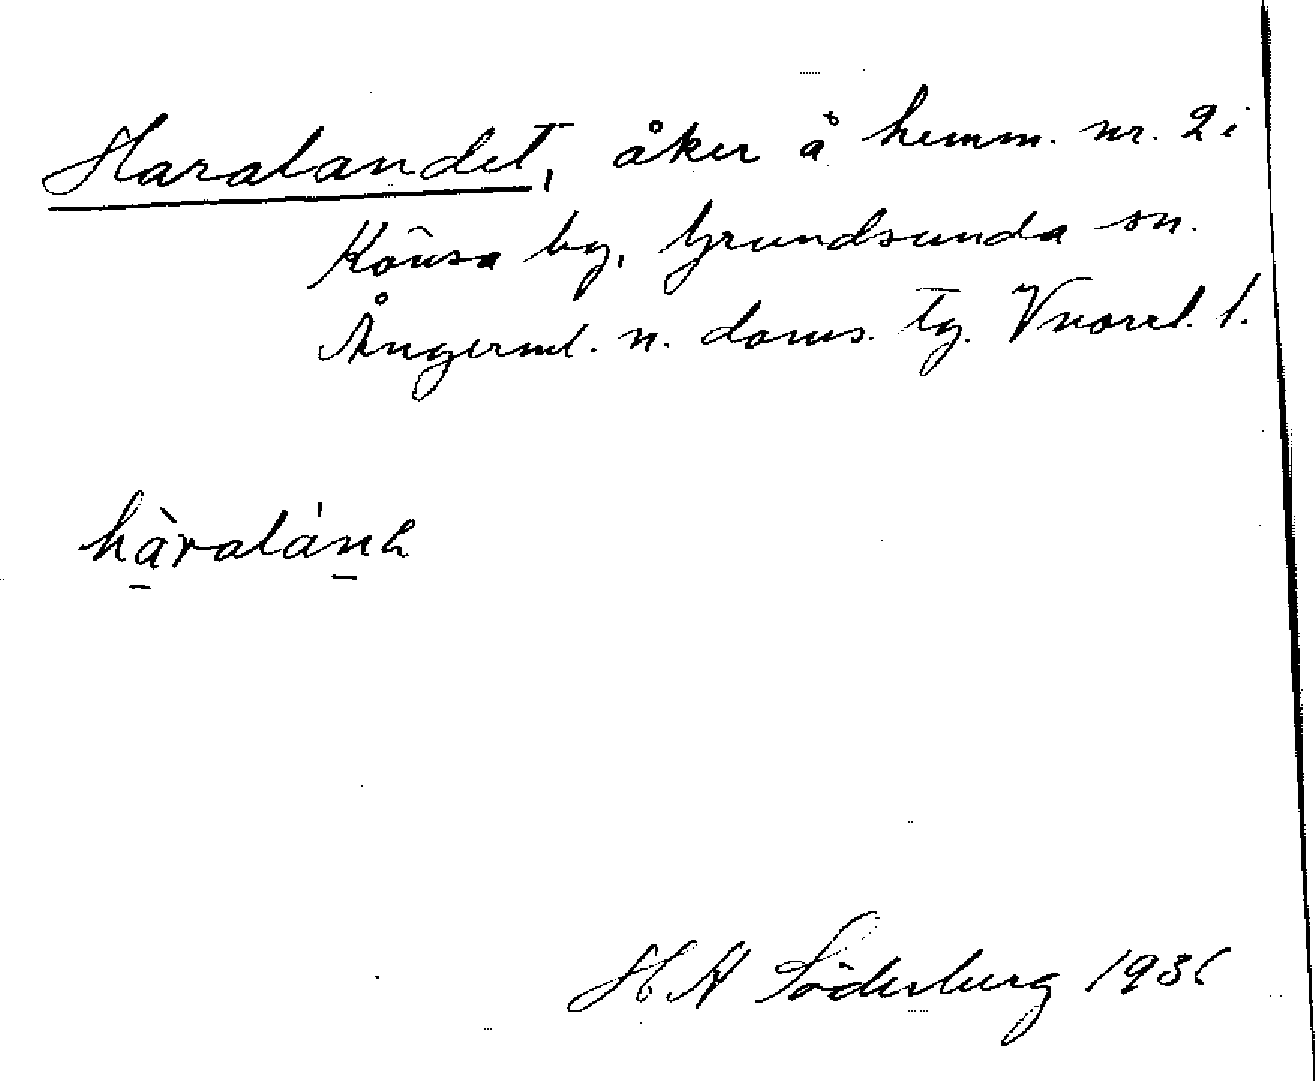 Haralandet, åker å hemm. nr. 2 i
Könsa by, Grundsunda sn.
Ångerml. n. doms. tg. Vnorrl. l.
hàralánd
H A Söderberg 1936